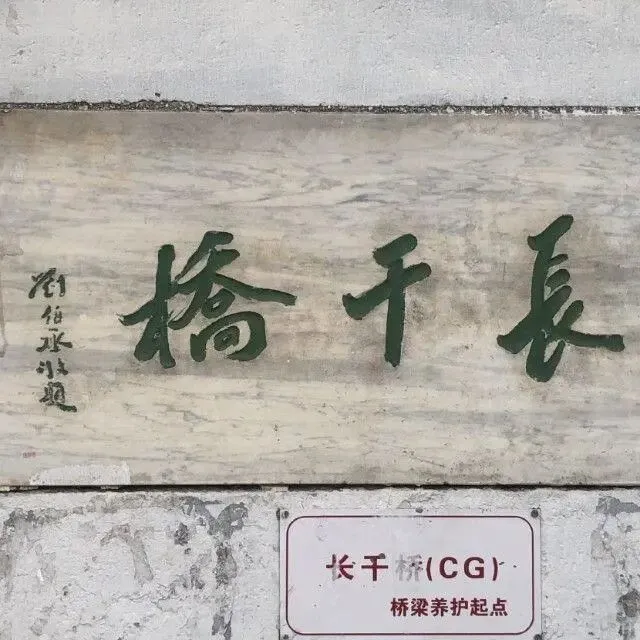 長干橋
劉伯承敬題
长干桥(CG)
桥梁养护起点